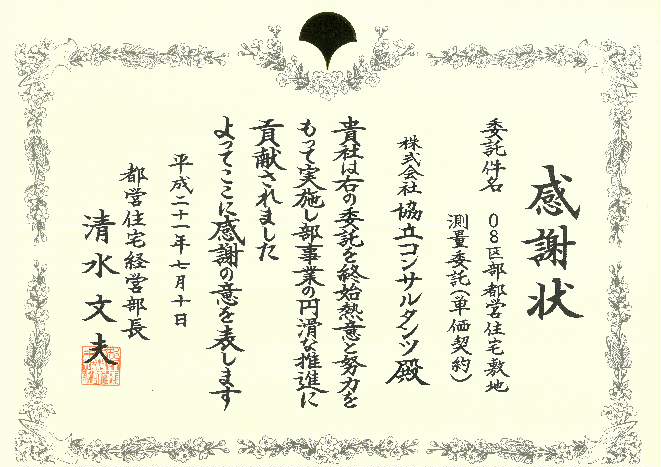 感謝状
委託件名 08区部都営住宅敷地
測量委託(単価契約)
株式会社 協立コンサルタンツ 殿
貴社は右の委託を終始熱意と努力を
もって実施し部事業の円滑な推進に
貢献されました
よってここに感謝の意を表します
平成二十一年七月十日
都営住宅経営部長
清水文夫